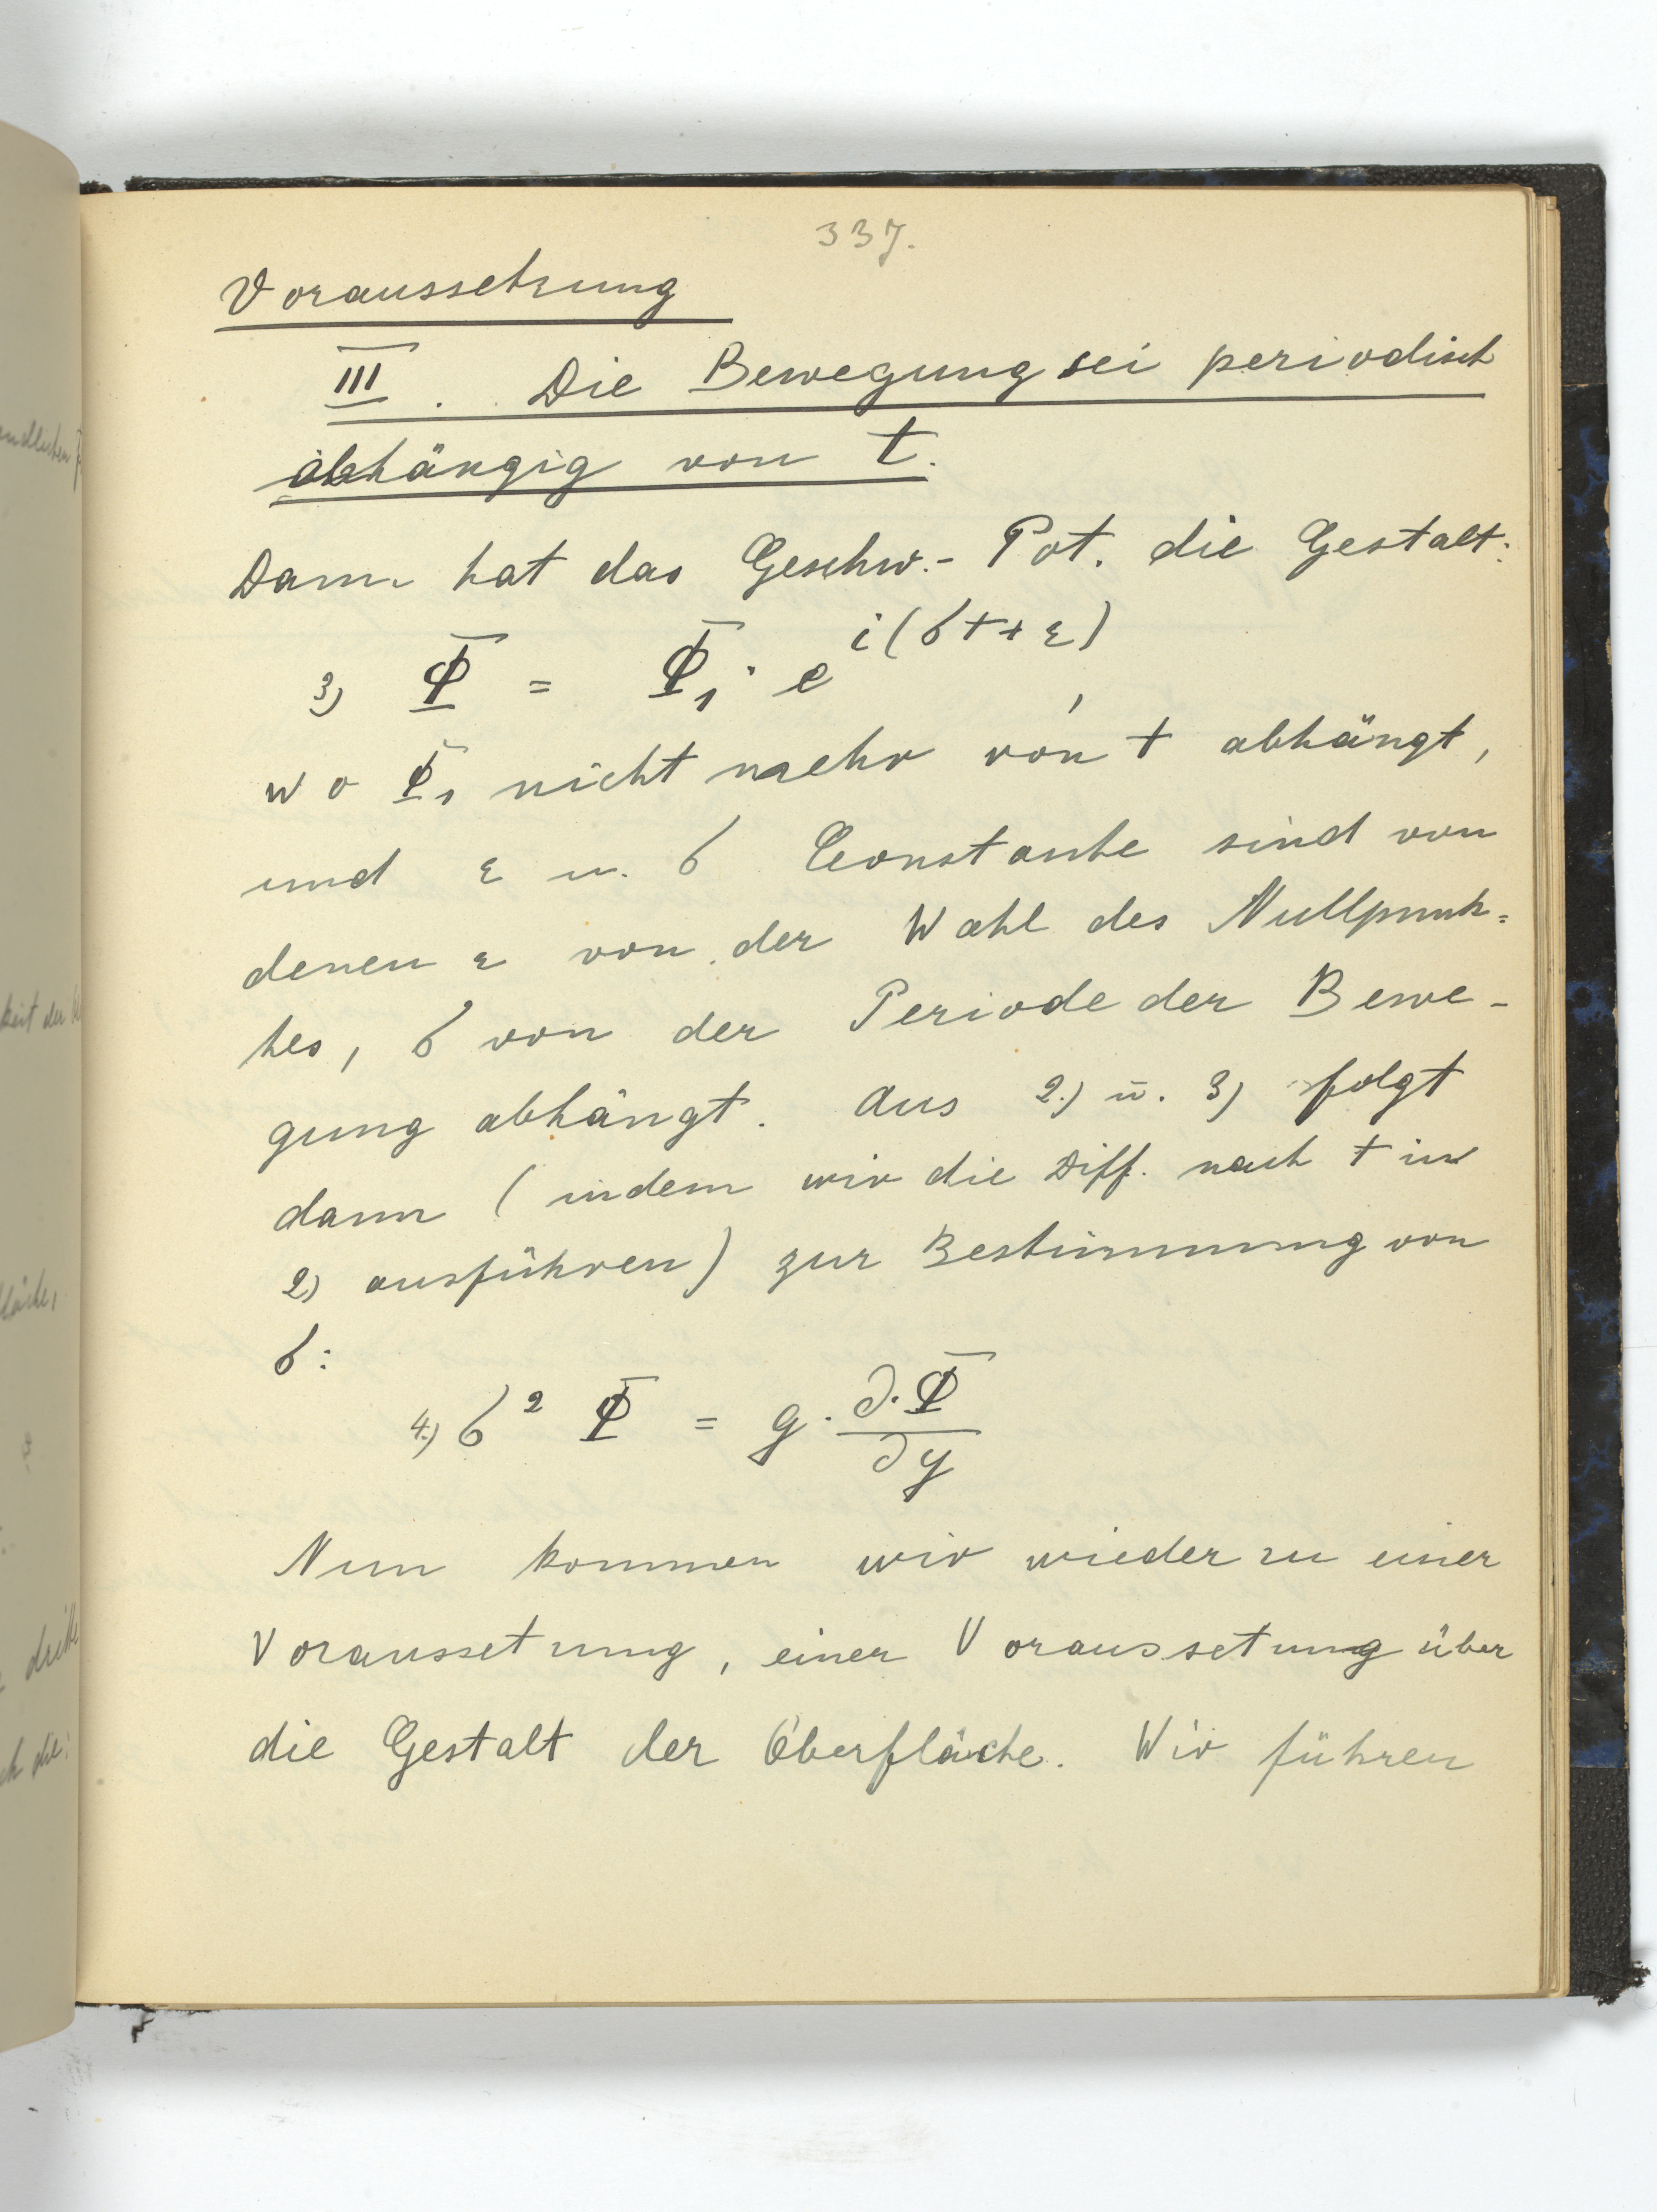 337.
Voraussetzung
III. Die Bewegung sei periodisch
abhängig von t.
Dann hat das Geschw.- Pot. die Gestalt:
3) Φ = Φ₁ · e^{i(σt + ε)},
wo Φ₁ nicht mehr von t abhängt,
und ε u. σ Constante sind von
denen ε von der Wahl des Nullpunk=
tes, σ von der Periode der Bewe-
gung abhängt. Aus 2.) u. 3) folgt
dann (indem wir die Diff. nach t in
2) ausführen) zur Bestimmung von
σ:
4.) σ² Φ = g · ∂·Φ/∂y
Nun kommen wir wieder zu einer
Voraussetung, einer Voraussetung über
die Gestalt der Oberfläche. Wir führen